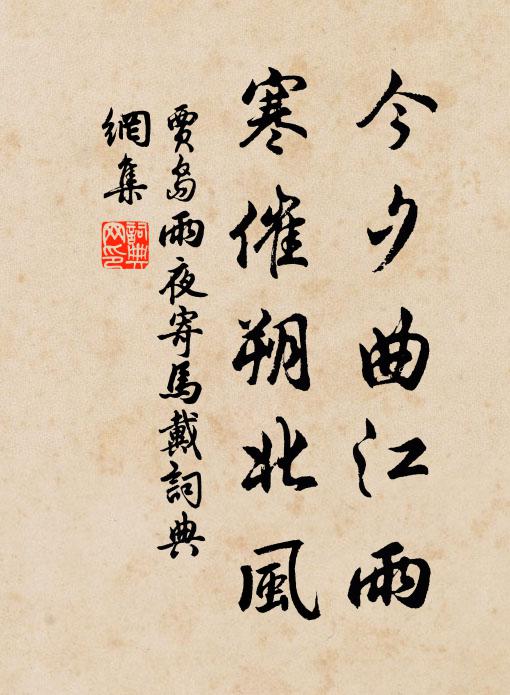 今夕曲江雨
寒催朔北風
賈島雨夜寄馬戴詞典
網集
詞典
网印